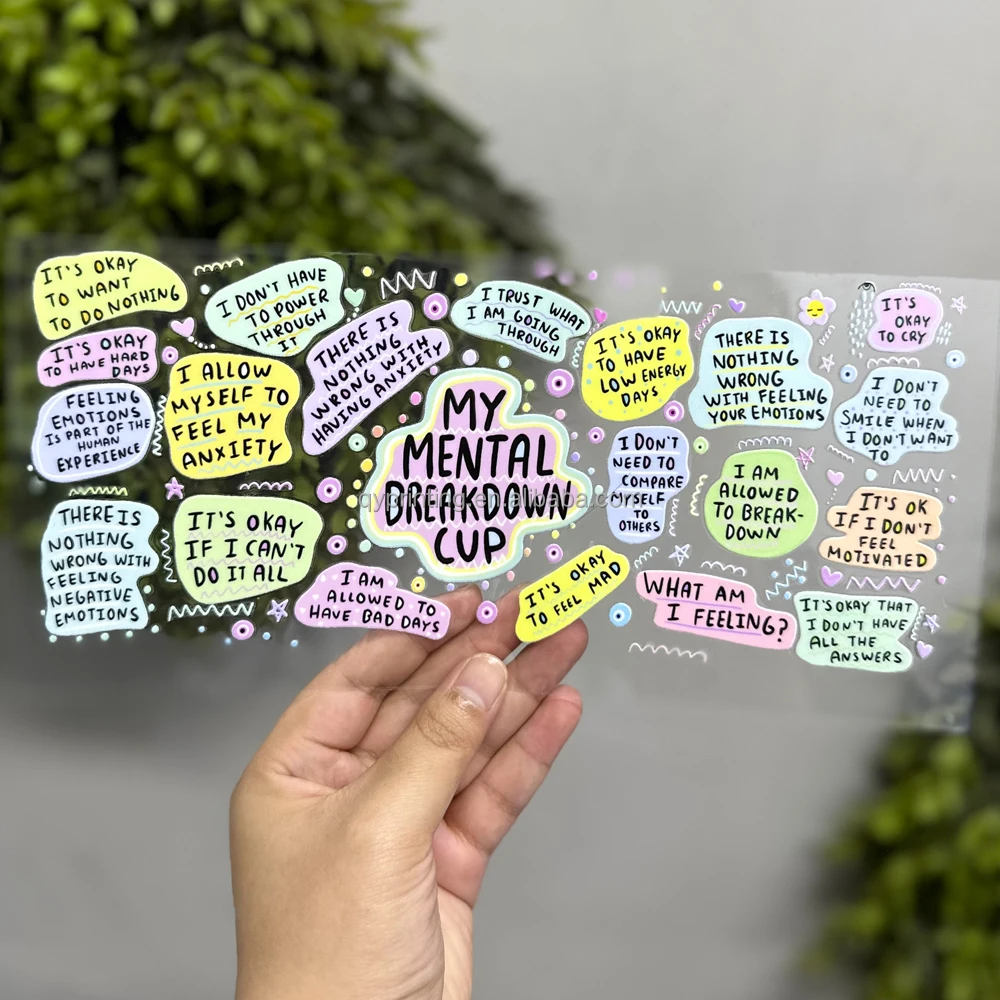 IT'S OKAY
TO WANT
TO DO NOTHING
IT'S OKAY
TO HAVE HARD
DAYS
FEELING
EMOTIONS
IS PART OF THE
HUMAN
EXPERIENCE
THERE IS
NOTHING
WRONG WITH
FEELING
NEGATIVE
EMOTIONS
I DON'T HAVE
TO POWER
THROUGH
IT
I ALLOW
MYSELF TO
FEEL MY
ANXIETY
IT'S OKAY
IF I CAN'T
DO IT ALL
THERE IS
NOTHING
WRONG WITH
HAVING ANXIETY
I AM
ALLOWED TO
HAVE BAD DAYS
I TRUST WHAT
I AM GOING
THROUGH
MY
MENTAL
BREAKDOWN
CUP
qyprinting.en.alibaba.com
IT'S OKAY
TO FEEL MAD
IT'S OKAY
TO HAVE
LOW ENERGY
DAYS
I DON'T
NEED TO
COMPARE
MYSELF
TO
OTHERS
THERE IS
NOTHING
WRONG
WITH FEELING
YOUR EMOTIONS
I AM
ALLOWED
TO BREAK-
DOWN
WHAT AM
I FEELING?
IT'S
OKAY
TO CRY
I DON'T
NEED TO
SMILE WHEN
I DON'T WANT
TO
IT'S OK
IF I DON'T
FEEL
MOTIVATED
IT'S OKAY THAT
I DON'T HAVE
ALL THE
ANSWERS